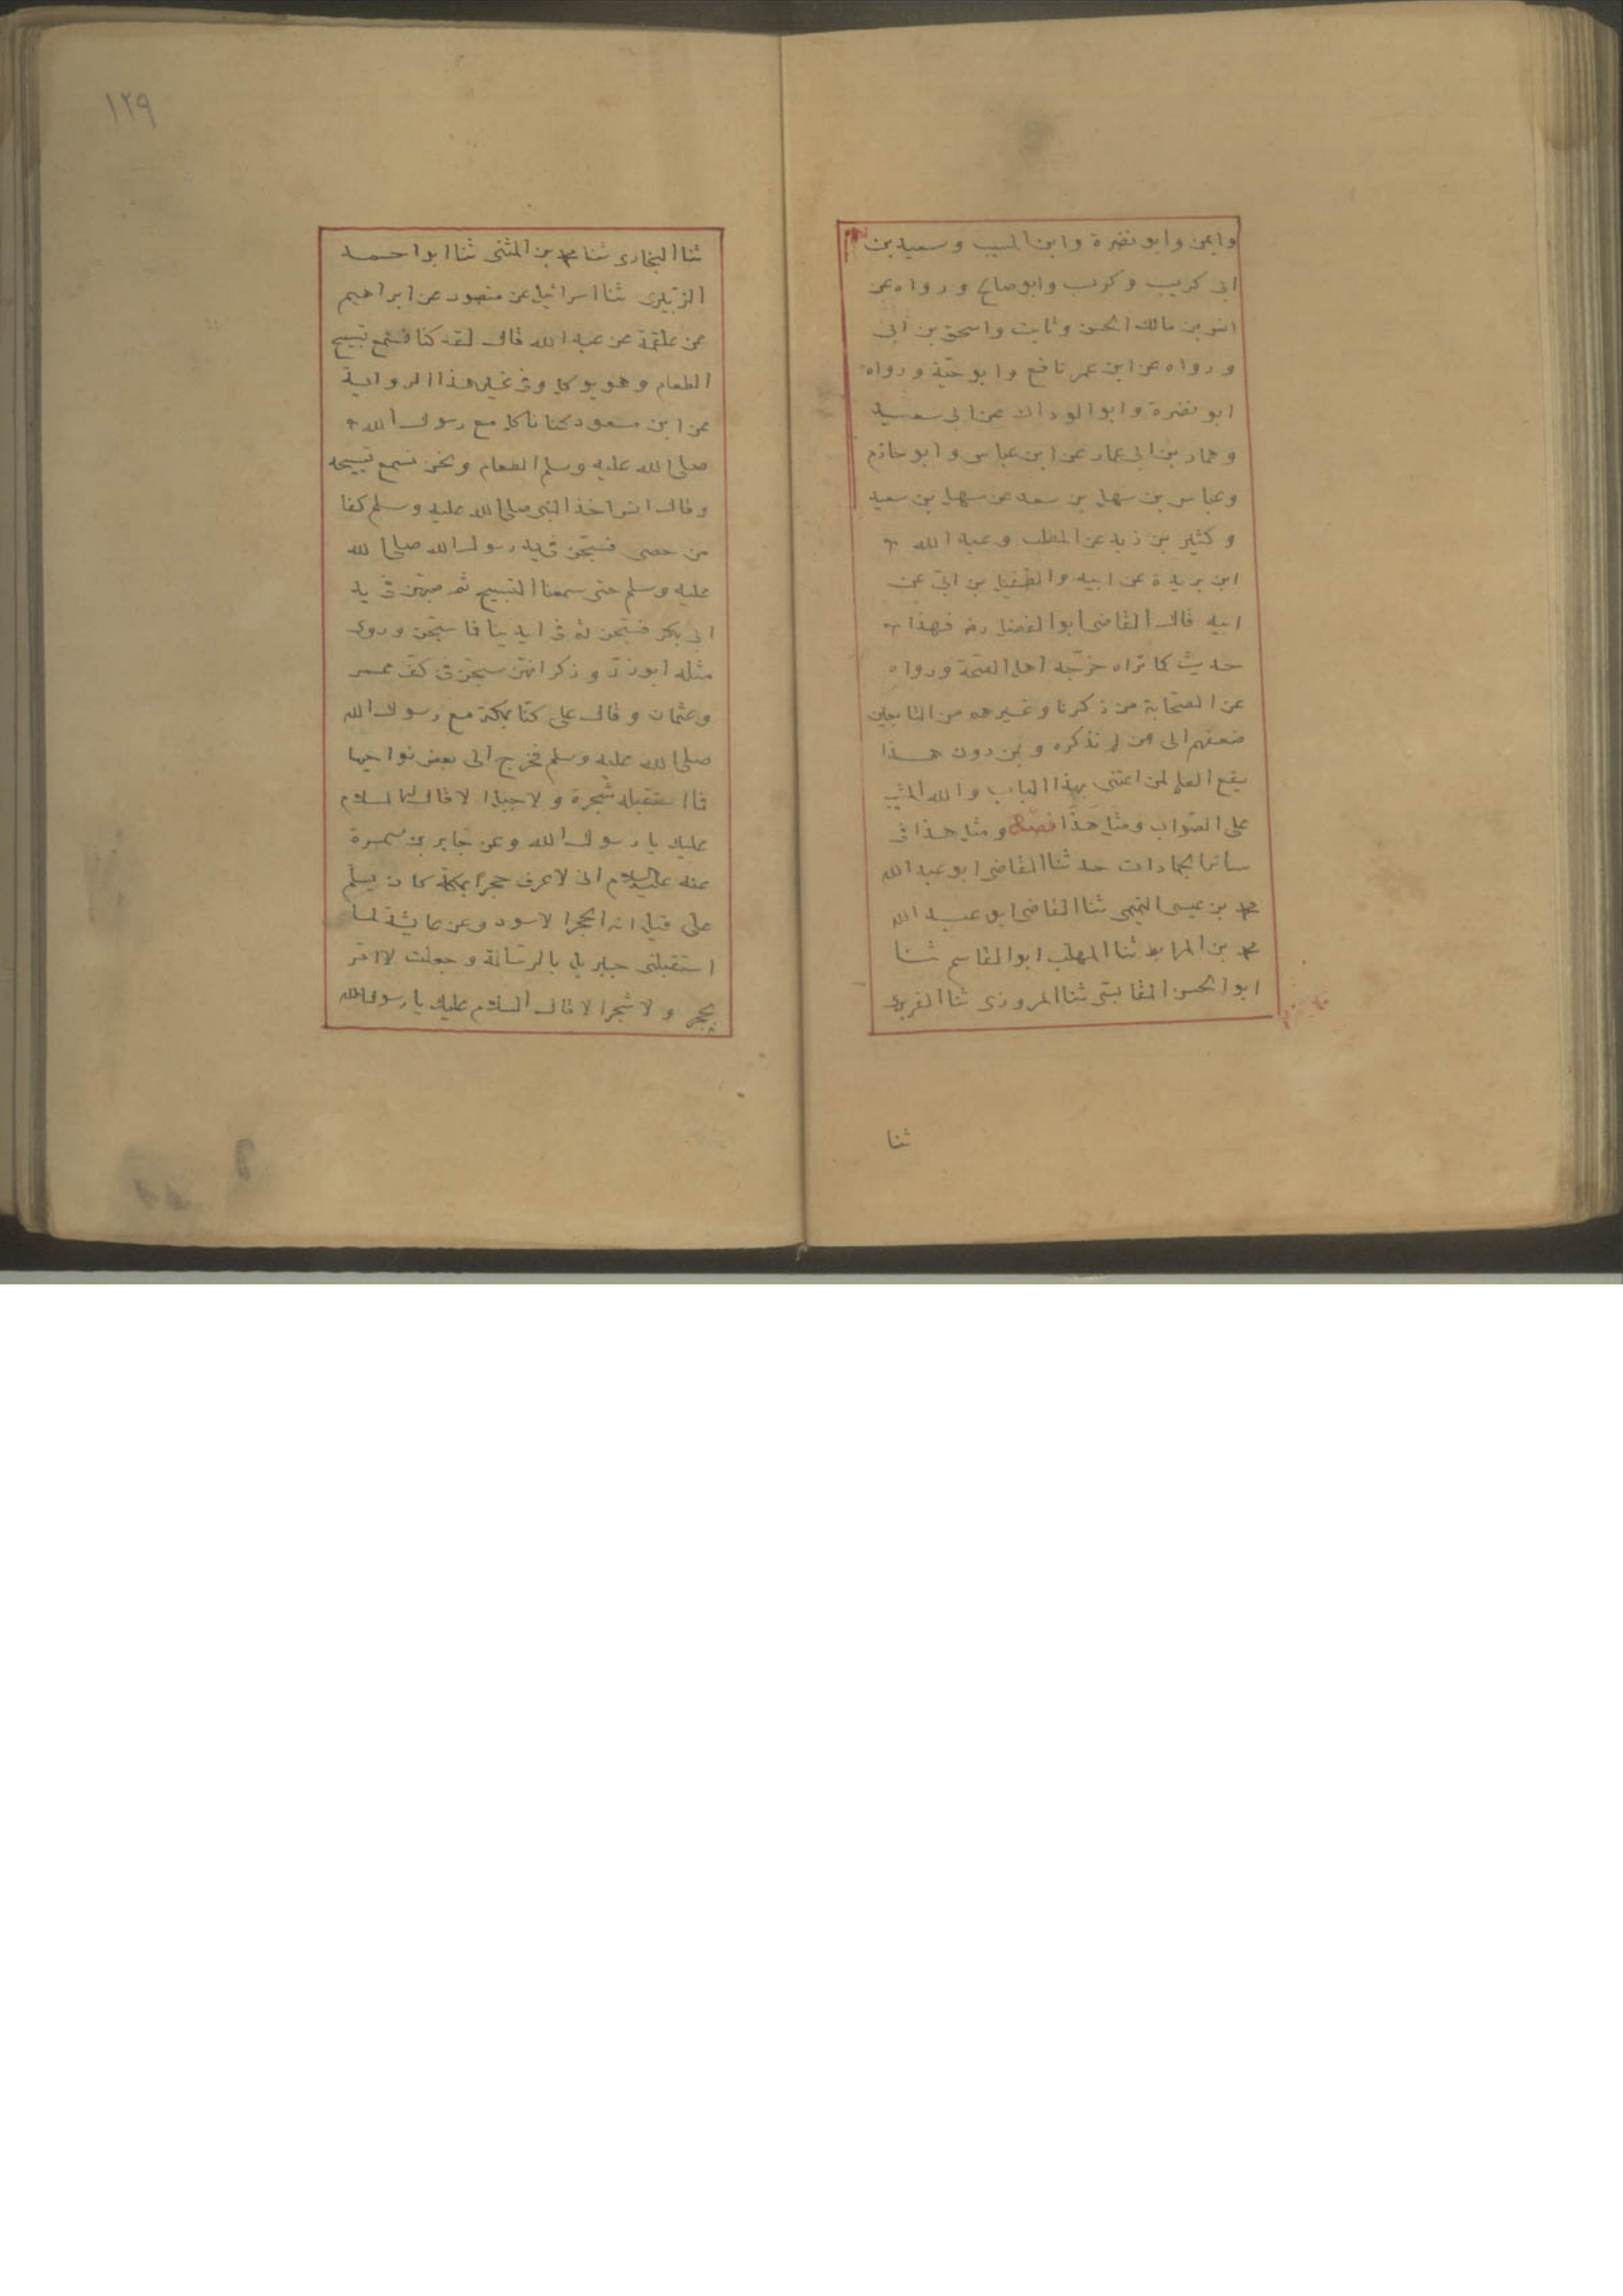 وايمن وابو نضرة وابن المسيب وسعيد بن
ابى كريب وكريب وابو صالح ورواه عن
انس بن مالك الحسن وثابت واسحق بن ابى
ورواه عن ابن عمر نافع وابو حيّة ورواه
ابو نضرة وابو الوداك عن ابى سعيد
وعمار بن ابى عمار عن ابن عباس وابو حازم
وعباس بن سهل بن سعد عن سهل بن سعيد
وكثير بن زيد عن المطلب وعبد الله
ابن بريدة عن ابيه والطفيل بن ابىّ عن
ابيه قال القاضى ابو الفضل رض فهذا
حديث كما تراه خرّجه اهل الصحّة ورواه
عن الصّحابة من ذكرنا وغيرهم من التابعين
ضعفهم الى من لم نذكره وبمن دون هذا
يقع العلم لمن اعتنى بهذا الباب والله المثيب
على الصّواب ومثل هَذَا فصل ومثل هذا فى
سائر الجمادات حدثنا القاضى ابو عبد الله
محمد بن عيسى التميمى ثنا القاضى ابو عبد الله
محمد بن المرابط ثنا المهلب ابو القاسم ثنا
ابو الحسن القابسى ثنا المروزى ثنا الفربرى
ثنا
١٢٩
ثنا البخارى ثنا محمد بن المثنى ثنا ابو احمد
الزّبيرى ثنا اسرائيل عن منصور عن ابراهيم
عن علقمة عن عبد الله قال لقد كنا نسمع تسبيح
الطعام وهو يوكل وفى غير هذا الرواية
عن ابن مسعود كنا ناكل مع رسول الله
صلى الله عليه وسلم الطعام ونحن نسمع تسبيحه
وقال انس اخذ النبى صلى الله عليه وسلم كفا
من حصى فسبّحن فى يد رسول الله صلى الله
عليه وسلم حتى سمعنا التسبيح ثم صبّهن فى يد
ابى بكر فسبّحن ثم فى ايدينا فما سبّحن وروى
مثله ابو ذرّ وذكر انهنّ سبّحن فى كفّ عمر
وعثمان وقال على كنّا بمكة مع رسول الله
صلى الله عليه وسلم فخرج الى بعض نواحيها
فما استقبله شجرة ولا جبل الا قال له السلام
عليك يا رسول الله وعن جابر بن سمرة
عنه عليه السلام انى لاعرف حجرًا بمكة كان يسلّم
علىّ قيل انه الحجر الاسود وعن عايشة لما
استقبلنى جبريل بالرسالة وجعلت لا امر
بحجر ولا شجر الا قال السلام عليك يا رسول الله